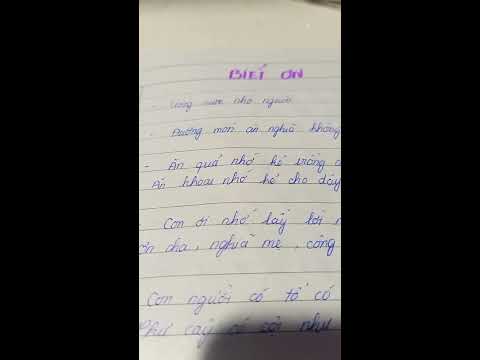 BIẾT ƠN
- Uống nước nhớ người
- Đường mòn ân nghĩa không
- Ăn quả nhớ kẻ trồng
Ăn khoai nhớ kẻ cho dây
Con ơi nhớ lấy lời
ơn cha, nghĩa mẹ, công
Con người có tổ có
Như cây có cội như